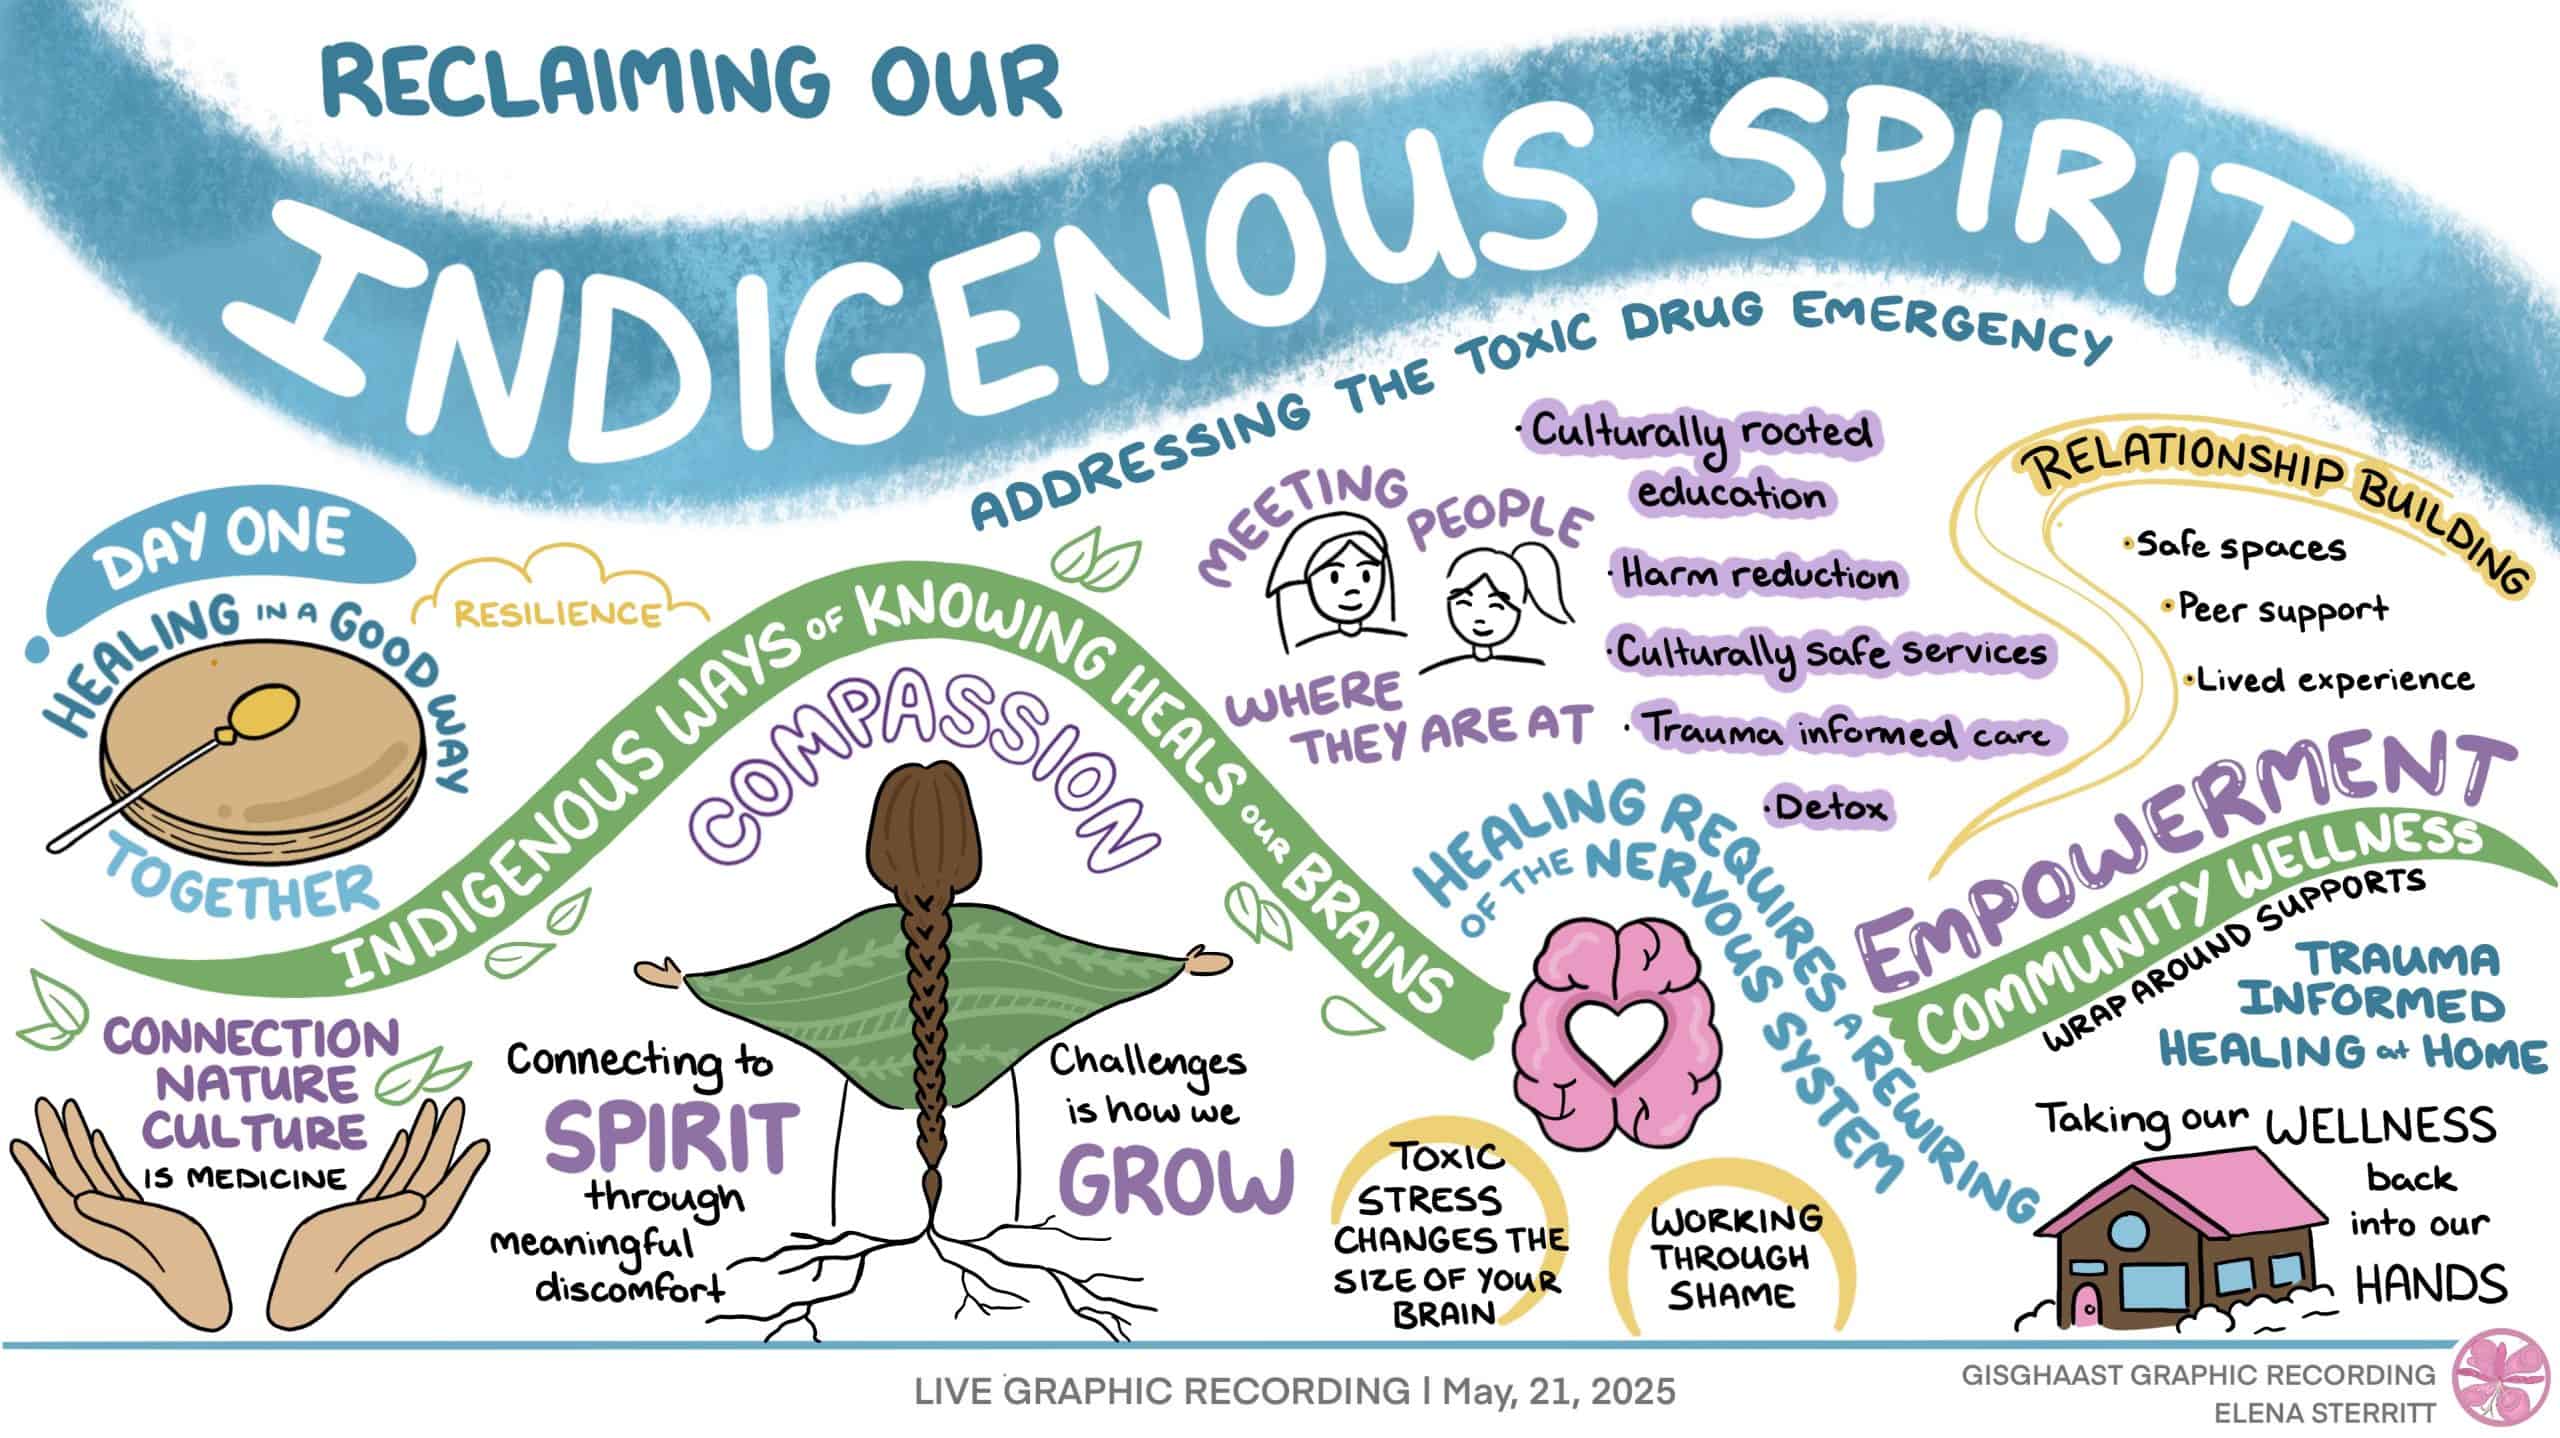 RECLAIMING OUR
INDIGENOUS SPIRIT
ADDRESSING THE TOXIC DRUG EMERGENCY
DAY ONE
HEALING IN A GOOD WAY
TOGETHER
RESILIENCE
INDIGENOUS WAYS OF KNOWING HEALS OUR BRAINS
COMPASSION
CONNECTION
NATURE
CULTURE
IS MEDICINE
Connecting to
SPIRIT
through
meaningful
discomfort
Challenges
is how we
GROW
MEETING
PEOPLE
WHERE
THEY ARE AT
·Culturally rooted
education
·Harm reduction
·Culturally safe services
·Trauma informed care
·Detox
HEALING REQUIRES A REWIRING
OF THE NERVOUS SYSTEM
TOXIC
STRESS
CHANGES THE
SIZE OF YOUR
BRAIN
WORKING
THROUGH
SHAME
RELATIONSHIP BUILDING
·Safe spaces
·Peer support
·Lived experience
EMPOWERMENT
COMMUNITY WELLNESS
WRAP AROUND SUPPORTS
TRAUMA
INFORMED
HEALING at HOME
Taking our WELLNESS
back
into our
HANDS
LIVE GRAPHIC RECORDING | May, 21, 2025
GISGHAAST GRAPHIC RECORDING
ELENA STERRITT